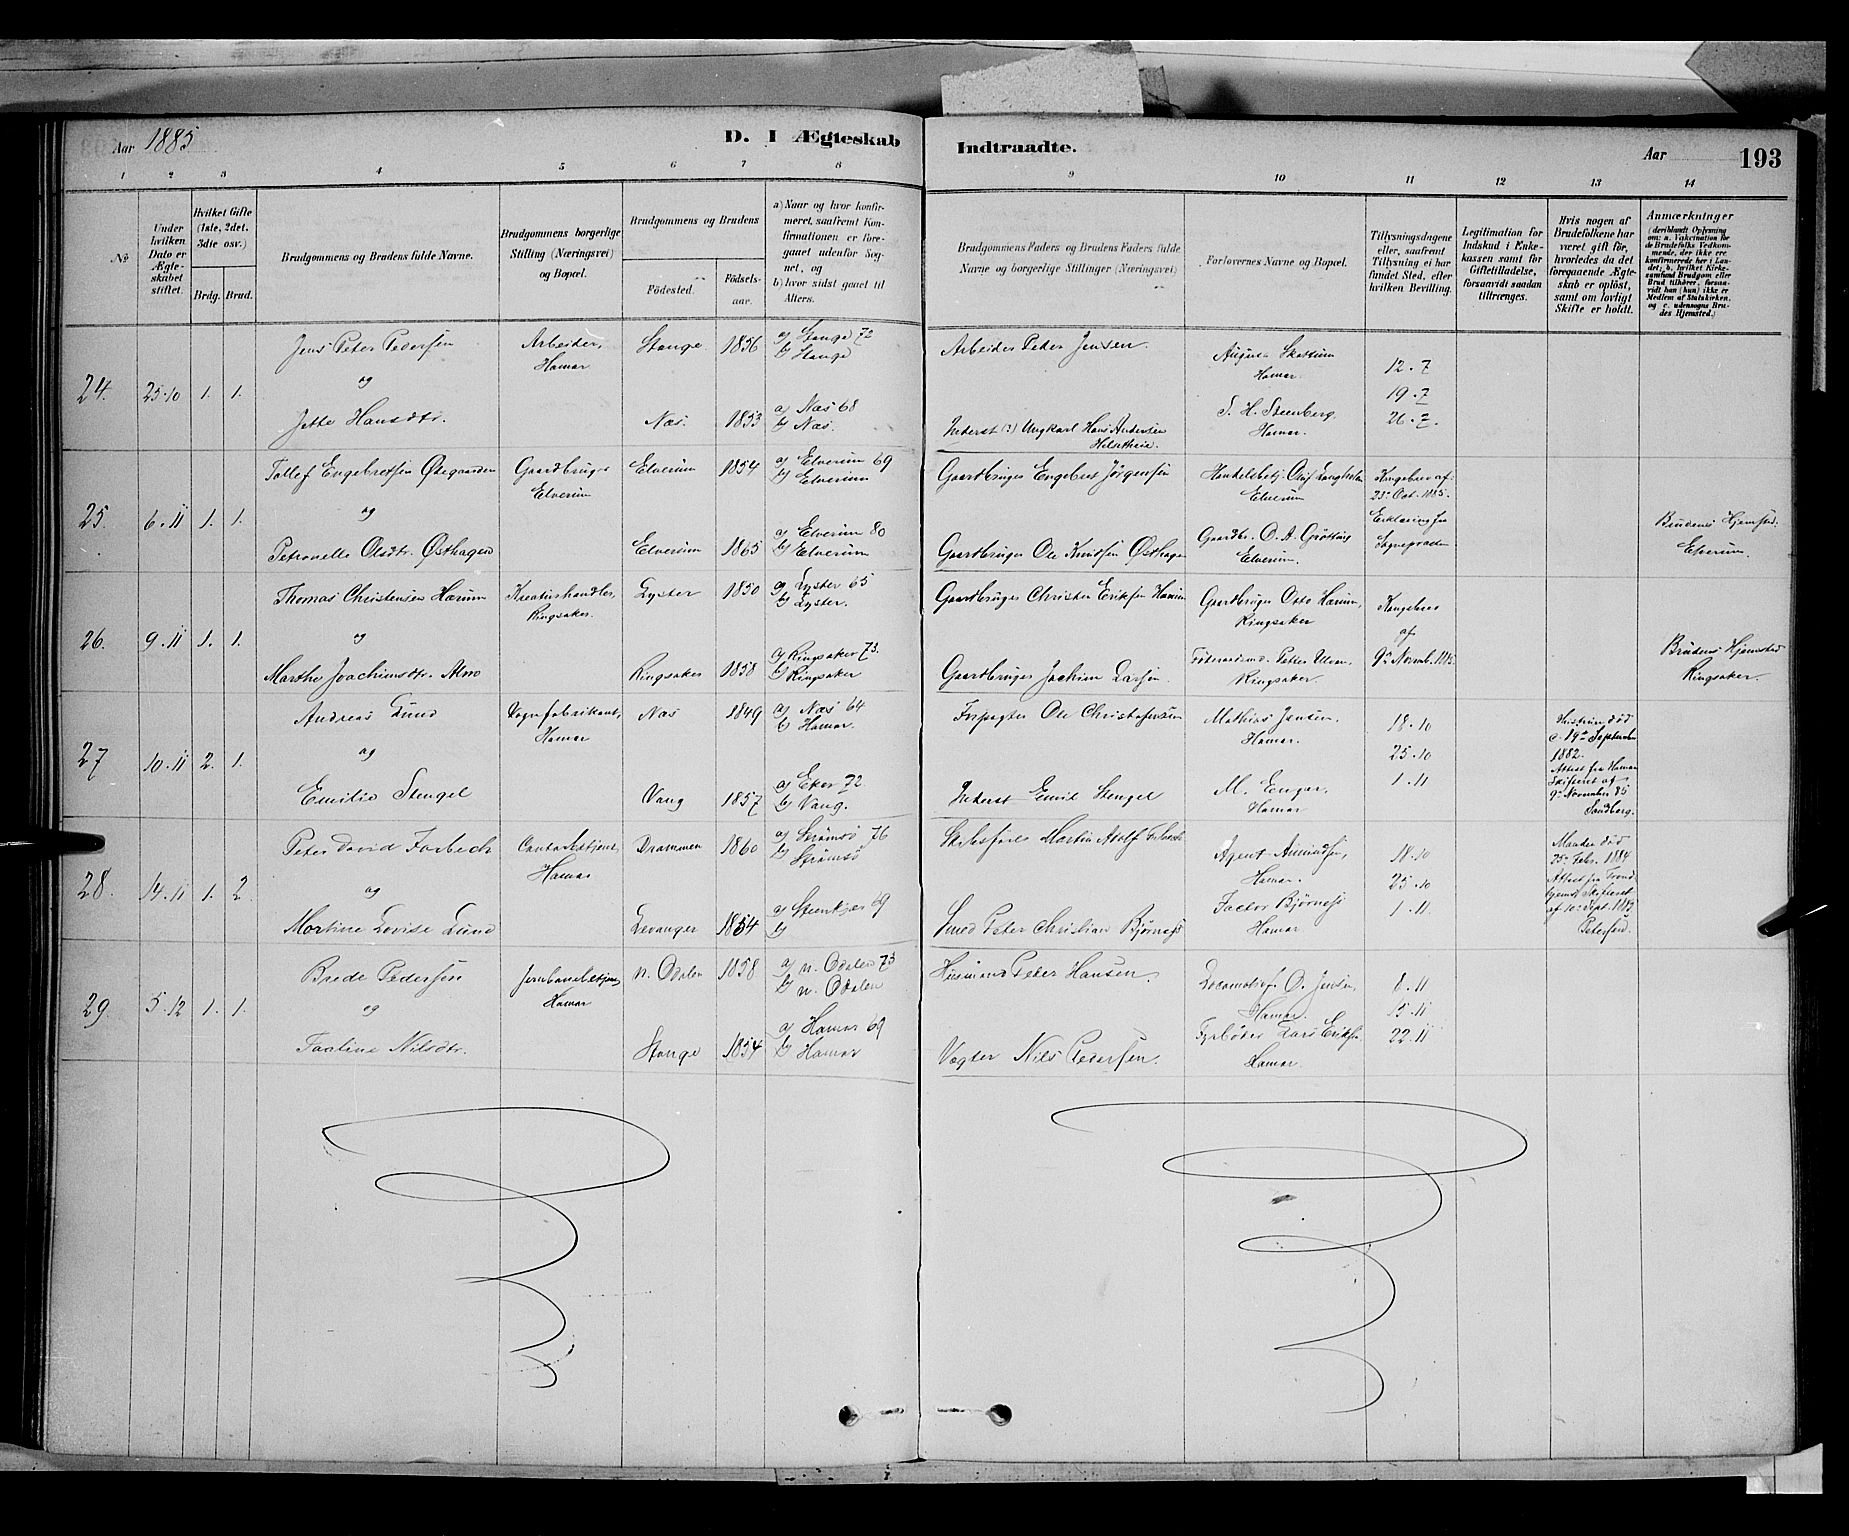 Aar 1885
D. I Ægteskab
Indtraadte.
Aar
193
1 2 3 4 5 6 7 8 9 10 11 12 13 14
No
Under hvilken Dato er Ægteskabet stiftet.
Hvilket Gifte (1ste, 2det, 3die osv.)
Brdg. Brud.
Brudgommens og Brudens fulde Navne.
Brudgommens borgerlige Stilling (Næringsvei) og Bopæl.
Brudgommens og Brudens
Födested.
Födsels-aar.
a) Naar og hvor konfirmeret, saafremt Konfirmationen er foregaaet udenfor Sognet, og
b) hvor sidst gaaet til Alters.
Brudgommens Faders og Brudens Faders fulde Navne og borgerlige Stillinger (Næringsvei)
Forlovernes Navne og Bopæl.
Tillysningsdagene eller, saafremt Tillysning ei har fundet Sted, efter hvilken Bevilling.
Legitimation for Indskud i Enkekassen samt for Giftetilladelse, forsaavidt saadan tiltrænges.
Hvis nogen af Brudefolkene har været gift för, hvorledes da det foregaaende Ægteskab er oplöst, samt om lovligt Skifte er holdt.
Anmærkninger (deriblandt Oplysning om: a. Vakcination for de Brudefolks Vedkommende, der ikke ere konfirmerede her i Landet; b. hvilket Kirkesamfund Brudgom eller Brud tilhörer, forsaavidt han (hun) ikke er Medlem af Statskirken, og c. udensogns Brudes Hjemsted.)
24. 25.10 1. 1.
Jens Peter Pedersen
Arbeider, Hamar
Stange 1856
a) Stange 72
b) Stange
Arbeider Peter Jensen.
Hamar.
12.7
og
19.7
Jette Hansdtr.
Næs. 1853
a) Næs 68
b) Næs.
Inderst (:) Ungkarl Hans Andersen
S. H. Steenberg, Hamar.
26.7.
25. 6.11 1. 1.
Tollef Engebretsen Østgaarden
Gaardbruger Elverum
Elverum 1854
a) Elverum 69
b) Elverum
Gaardbruger Engebret Jörgensen
Elverum
Kongebrev af 23. Oct. 1885.
og
Erklæring fra Sognepræsten
Petronelle Olsdtr. Østhagen
Elverum 1865
a) Elverum 80
b) Elverum
Gaardbruger Ole Knudsen Østhagen
Gaardbr. O. A. Grötting Elverum.
Brudens Hjemsted. Elverum.
26. 9.11 1. 1.
Thomas Christensen Hærum
Kreaturhandler, Ringsaker.
Lyster 1850
a) Lyster 65
b) Lyster.
Gaardbruger Christen Eriksen Hærum
Gaardbruger Otto Hærum, Ringsaker
Kongebrev
og
af
Marthe Joachimsdtr. Almo
Ringsaker 1858
a) Ringsaker 73.
b) Ringsaker
Gaardbruger Joachim Larsen.
Ringsaker.
9de Novemb. 1885.
Brudens Hjemsted Ringsaker.
27 10.11 2. 1.
Andreas Lund
Vognfabrikant, Hamar
Næs 1849
a) Næs 64
b) Hamar.
Forpagter Ole Christofersen
Mathias Jensen, Hamar.
18.10
og
25.10
Emilie Stengel
Vang 1857
a) Eker 72
b) Vang.
Inderst Emil Stengel
M. Enger, Hamar
1.11
Hustruen död
19de September
1882.
Attest fra Hamar
Skifteret af
9de November 85
Sandberg.
28. 14.11 1. 2.
Peter David Forbech
Contorbetjent, Hamar
Drammen 1860
a) Strömsö 76
b) Strömsö
Skibsförer Martin Adolf Forbech
Agent Amundsen, Hamar.
18.10
og
25.10
Martine Lovise Lund
Levanger 1854
a) Steenkjær 69
b)
Smed Peter Christian Björnest
Factor Bjørnest Hamar
1.11
Manden död
25. Febr. 1884
Attest fra Trondhjems Skifteret
af 10. Sept. 1885
Petersen.
29. 5.12 1. 1.
Brede Pedersen
Jernbanebetjent, Hamar
n. Odalen 1858
a) n. Odalen 73
b) n. Odalen
Husmand Peter Hansen
Locomotivf. O. Jensen, Hamar.
8.11
og
15.11
Taaline Nilsdtr.
Stange 1854
a) Hamar 69
b) Hamar
Vægter Nils Pedersen.
Fyrböder Lars Eriksen, Hamar.
22.11